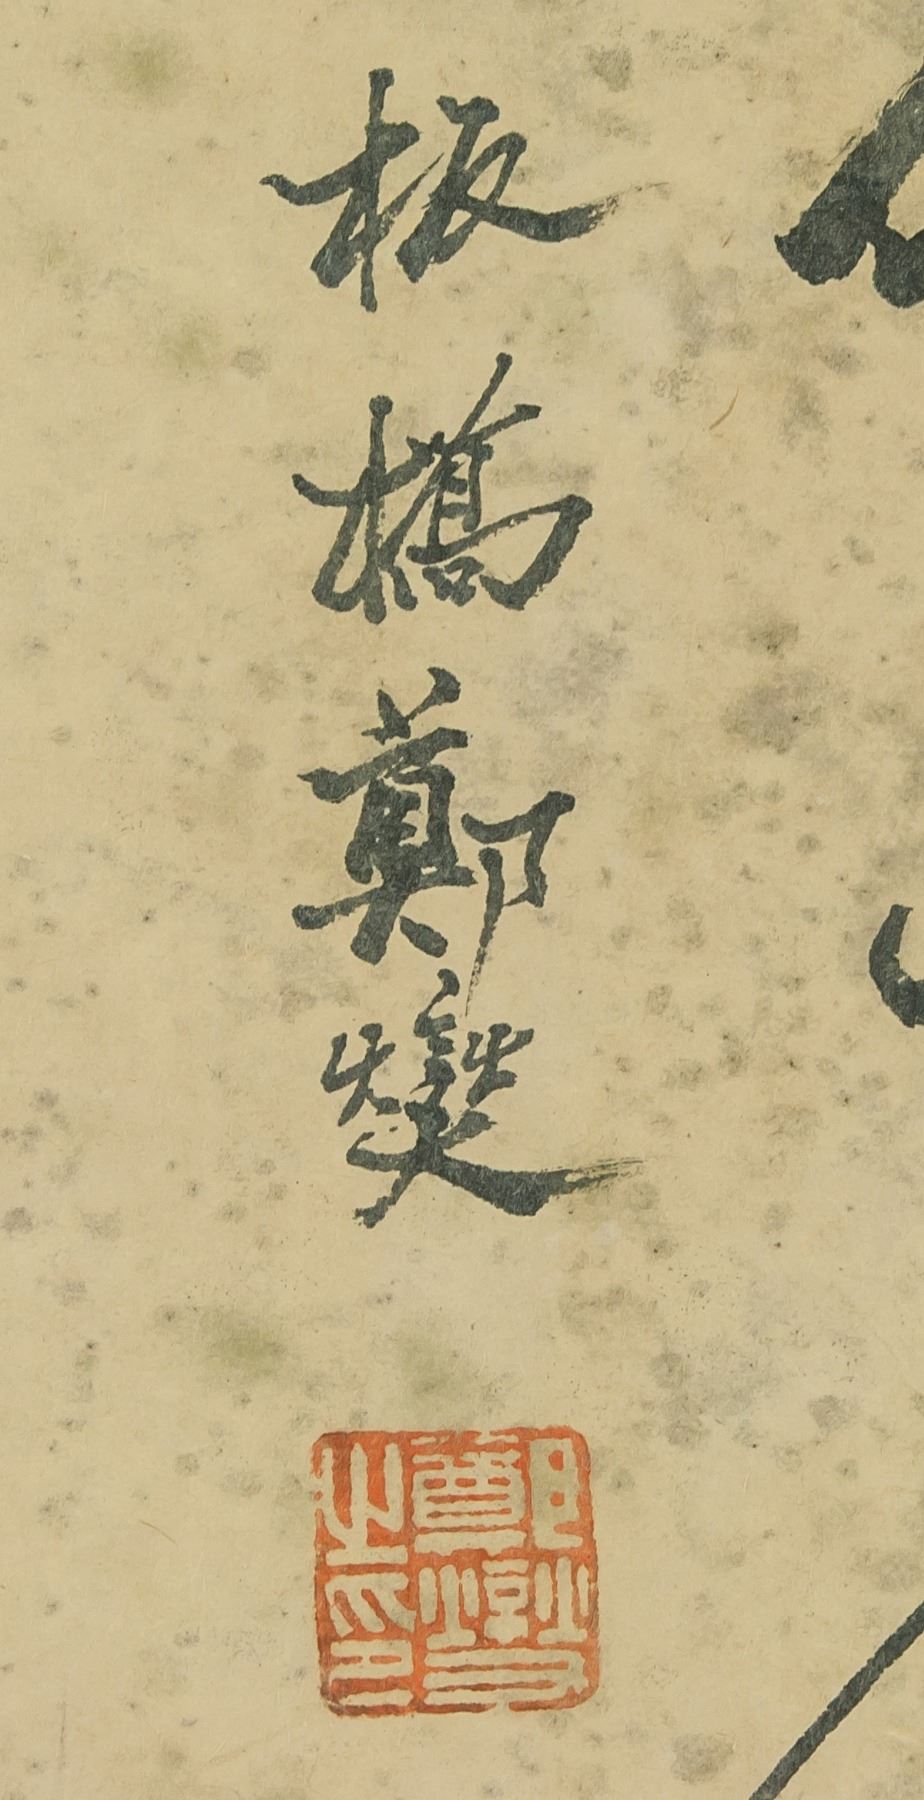 板橋鄭燮
鄭燮
之印